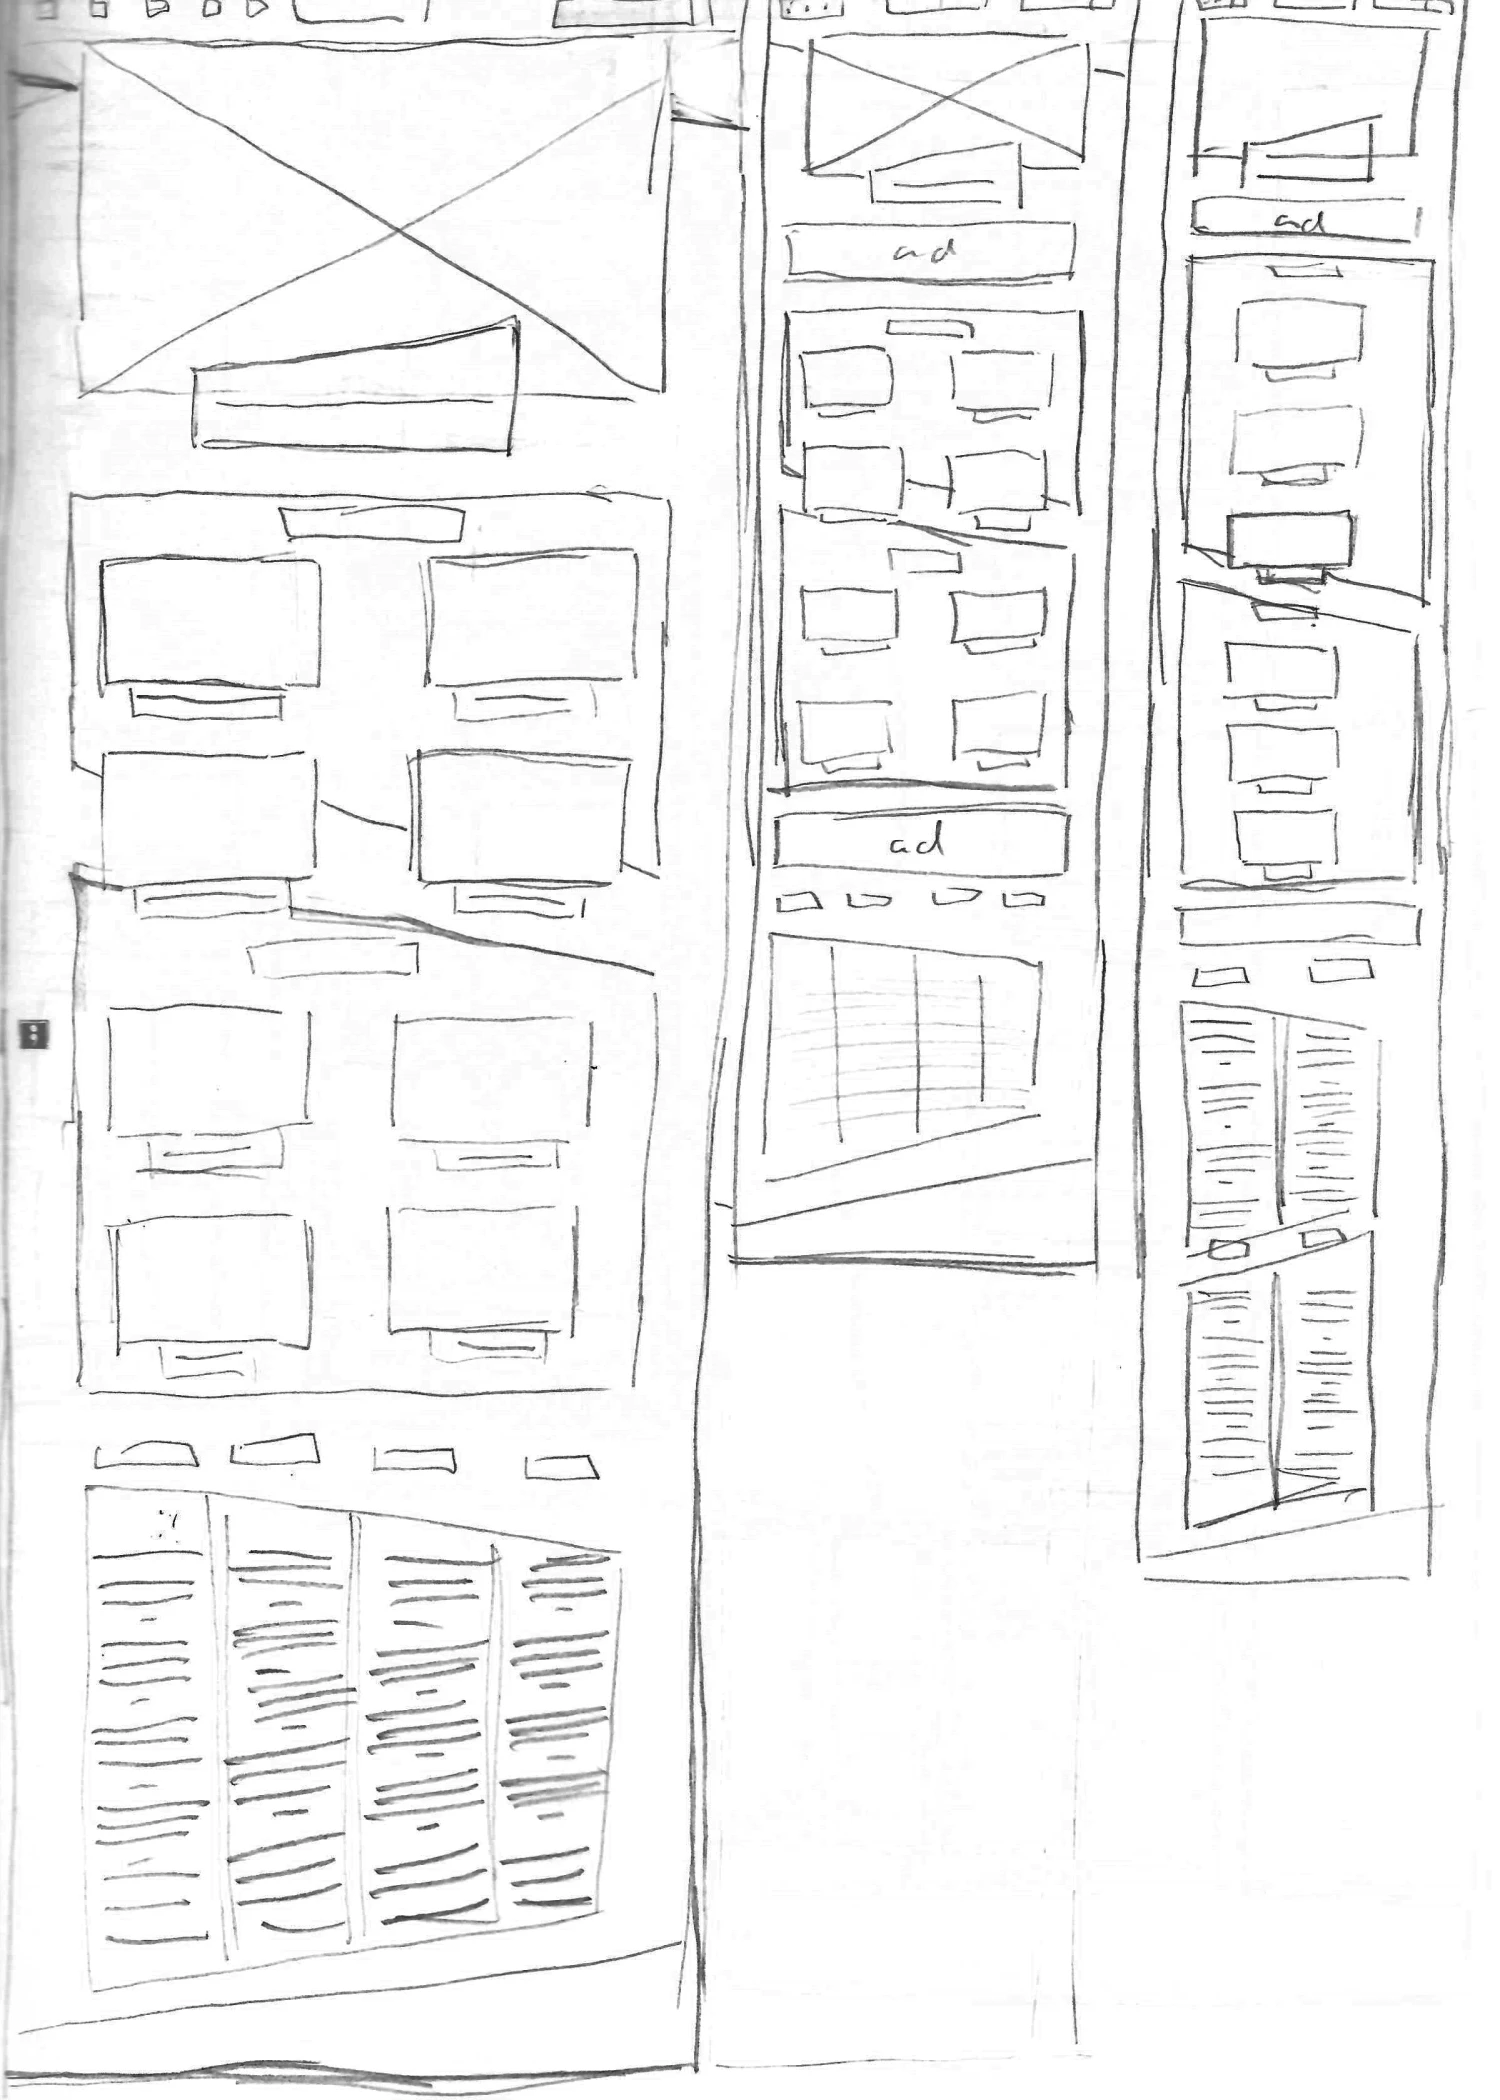 ad
ad
ad